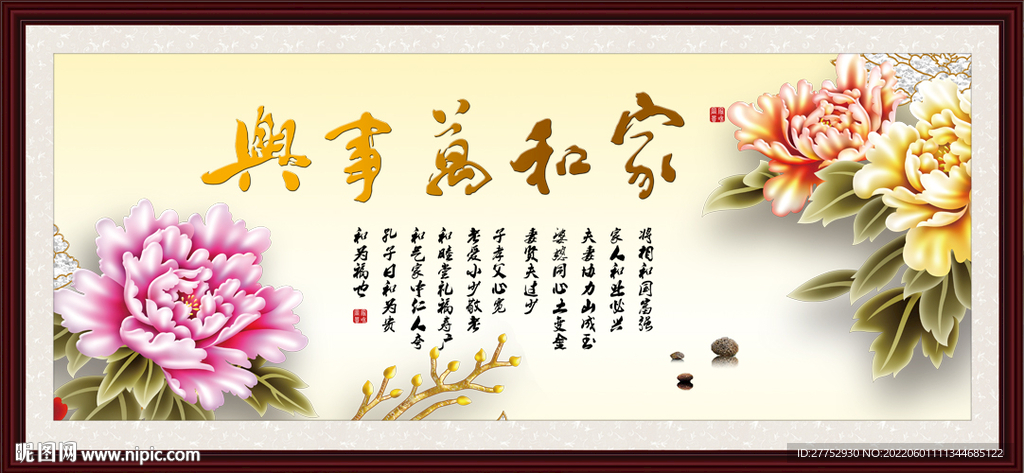 家和萬事興
将相和国富强
家人和业必兴
夫妻协力山成玉
婆媳同心土变金
妻贤夫过少
子孝父心宽
老爱小少敬老
和睦堂礼福寿广
和气家中仁人奇
孔子曰和为贵
和为福也
昵图网 www.nipic.com
ID:27752930 NO:20220601111344685122